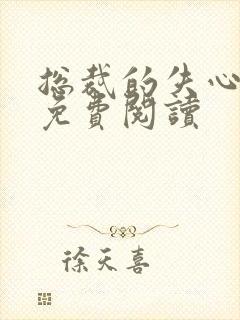 总裁的失心
免費閱讀
徐天喜